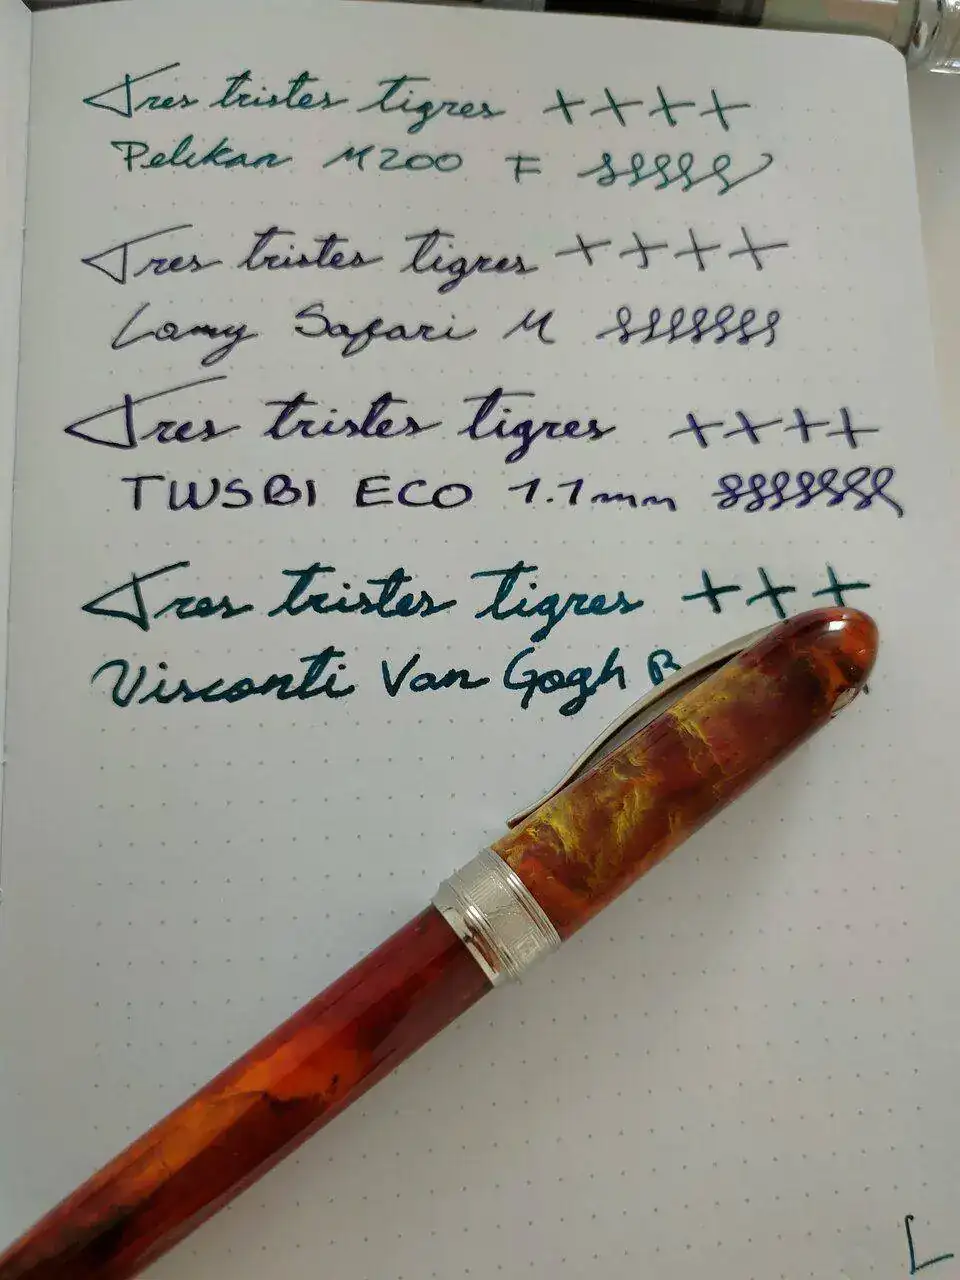 Tres tristes tigres ++++
Pelikan M200 F
Tres tristes tigres ++++
Lamy Safari M
Tres tristes tigres ++++
TWSBI ECO 1.1mm
Tres tristes tigres +++
Visconti Van Gogh B
L